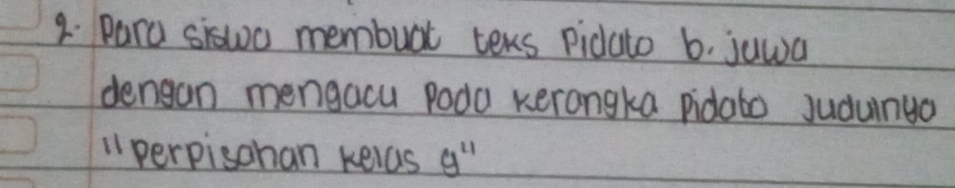 2. Para siswa membuat teks Pidato b. jawa
dengan mengacu pada kerangka pidato Judulnya
"perpisahan kelas 9"